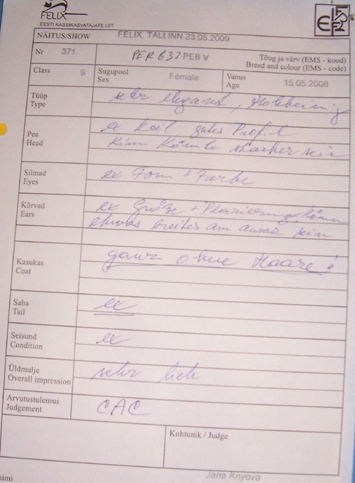 FELIX
EESTI KASSIKASVATAJATE LIIT
NÄITUS/SHOW FELIX, TALLINN 23.05.2009
Nr 371 PEB V Tõug ja värv (EMS - kood)
Breed and colour (EMS - code)
Class 9 Sugupool Female Vanus 15.05.2008
Sex Age
Tüüp sehr elegant,
Type
Pea ex Keil, gutes Profil
Head Kinn könnte stärker sein
Silmad ex Form + Farbe
Eyes
Kõrvad ex Größe + Plazierung können
Ears etwas breiter am sein
Kasukas ganz ohne Haare!
Coat
Saba ex
Tail
Seisund ex
Condition
Üldmulje sehr lieb
Overall impression
Arvutustulemus CAC
Judgement
Kohtunik / Judge
Jana Knyova
nimi